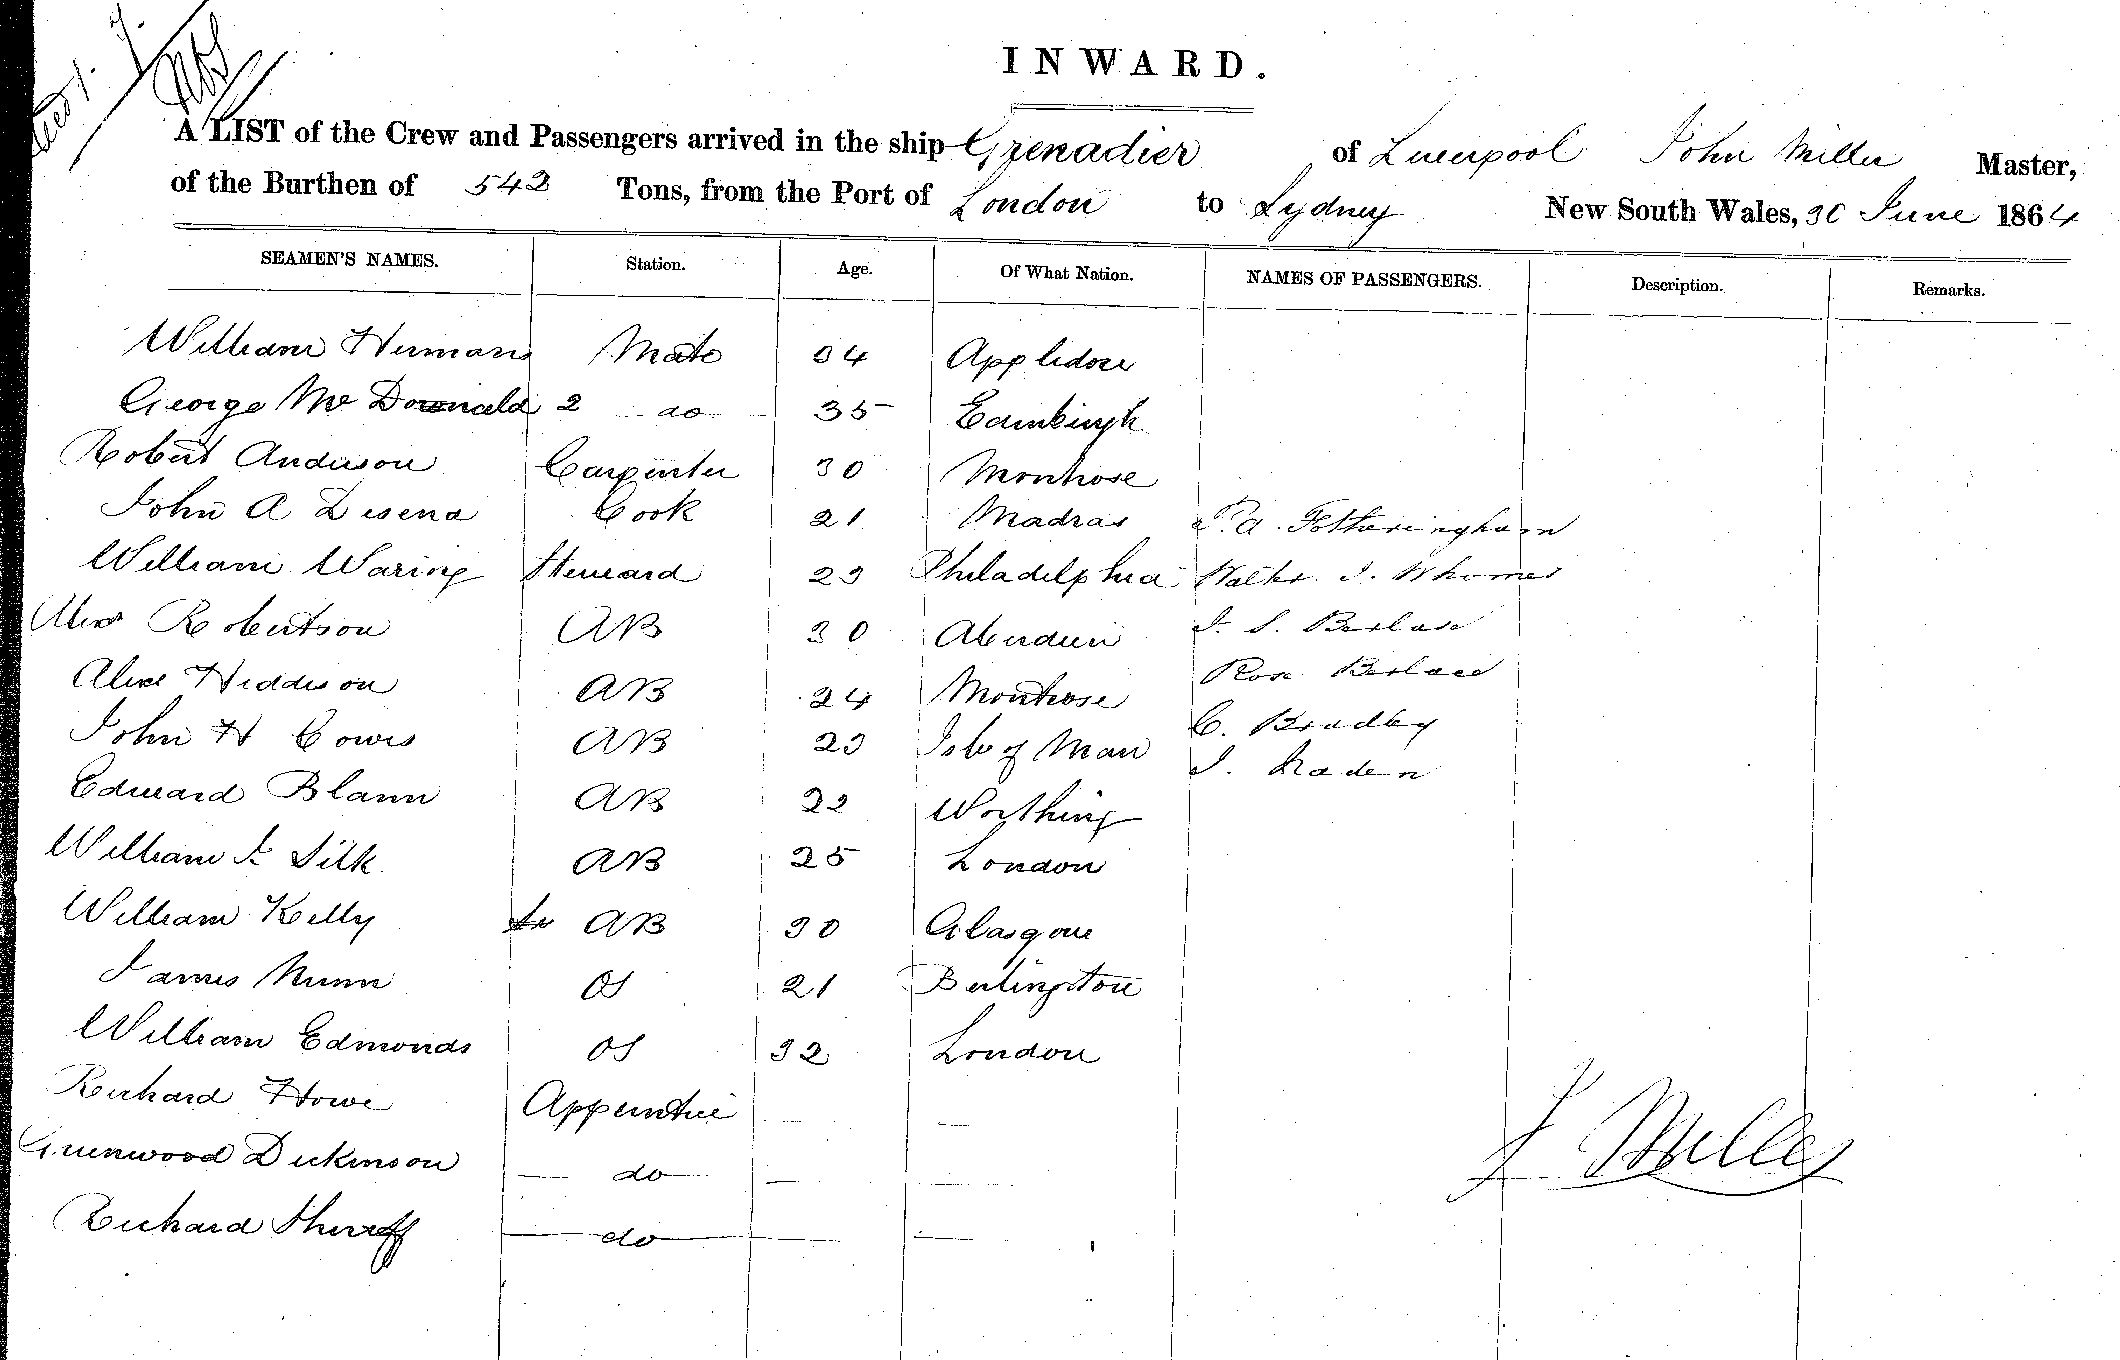 INWARD.
A LIST of the Crew and Passengers arrived in the ship Grenadier of Liverpool John Miller Master,
of the Burthen of 542 Tons, from the Port of London to Sydney New South Wales, 30 June 1864
SEAMEN'S NAMES. Station. Age. Of What Nation. NAMES OF PASSENGERS. Description. Remarks.
William Hermans Mate 34 Appledore
George Mc Donnald 2 do 35 Edinburgh
Robert Anderson Carpenter 30 Montrose
John A Cook 21 Madras P. A. Fotheringham
William Waring Steward 23 Philadelphia Walter J. Whomes
Alexr Robertson AB 30 Aberdeen J. S. Borlase
Alexr AB 24 Montrose Rose Borlase
John H Cowis AB 23 Isle of Man C. Bradley
Edward Blann AB 22 Worthing J. Haden
William F Silk AB 25 London
William Kelly AB 30 Glasgow
James Nunn OS 21 Burlingston
William Edmonds OS 32 London
Richard Howe Apprentice
Greenwood Dickinson do
Richard Sherreff do
J Miller